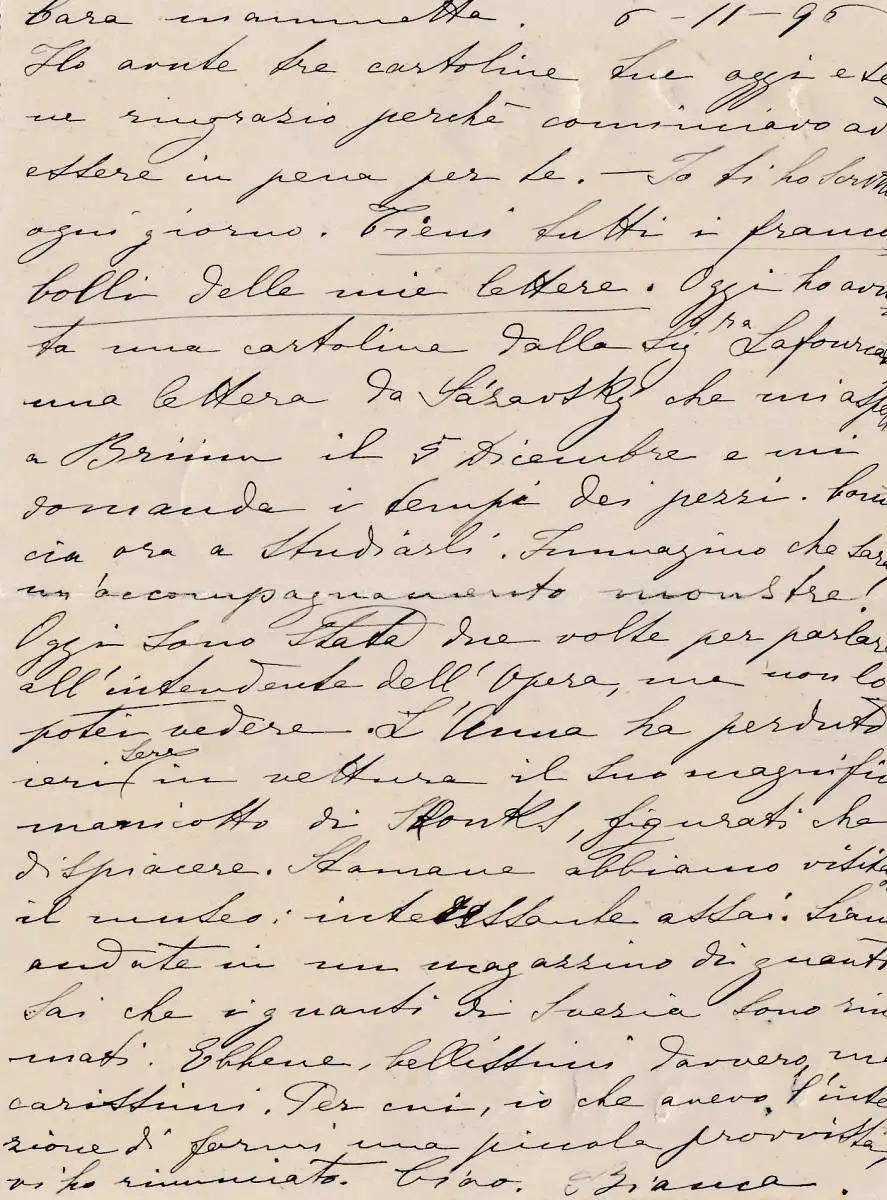 Cara mammetta. 6-11-96
Ho avute tre cartoline tue oggi e te
ne ringrazio perchè cominciavo ad
essere in pena per te. — Io ti ho scritto
ogni giorno. Tieni tutti i franco
bolli delle mie lettere. Oggi ho avu
ta una cartolina dalla Sig.ra Lafourcade
una lettera da Sázavský che mi aspetta
a Brünn il 5 Dicembre e mi
domanda i tempi dei pezzi. Comin
cia ora a studiarli. Immagino che sarà
un'accompagnamento monstre!
Oggi sono stata due volte per parlare
all'intendente dell'Opera, ma non lo
potei vedere. L'Anna ha perduto
ieri sera in vettura il suo magnifico
manicotto di Skonks, figurati che
dispiacere. Stamane abbiamo visitato
il museo: interessante assai. Siamo
andate in un magazzino di guanti
Sai che i guanti di Svezia sono rino
mati. Ebbene, bellissimi davvero, ma
carissimi. Per cui, io che avevo l'inten
zione di farmi una piccola provvista,
vi ho rinunciato. Ciao. Bianca.